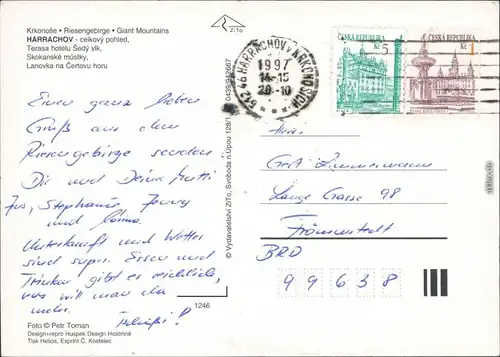 Krkonoše • Riesengebirge • Giant Mountains
HARRACHOV - celkový pohled,
Terasa hotelu Šedý vlk,
Skokanské můstky,
Lanovka na Čertovu horu
ZiTo
512 46 HARRACHOV V KRKONOŠÍCH
1997
14-15
20.10
ČESKÁ REPUBLIKA
Kč 5
ČESKÁ REPUBLIKA
Kč 1
Einen ganz lieben
Gruß aus dem
Riesengebirge senden
Dir und Deine Mutti
Stephanie, Jenny
und
Unterkunft und Wetter
sind super. Essen und
Trinken gibt es reichlich,
was will man da
mehr.
Gert Zimmermann
Lange Gasse 98
BRD
99638
© Vydavatelství ZiTo, Svoboda n. Úpou 128/1
0439/942667
1246
Foto © Petr Toman
Design+repro Huspek Design Hostinné
Tisk Helios, Exprint Č. Kostelec